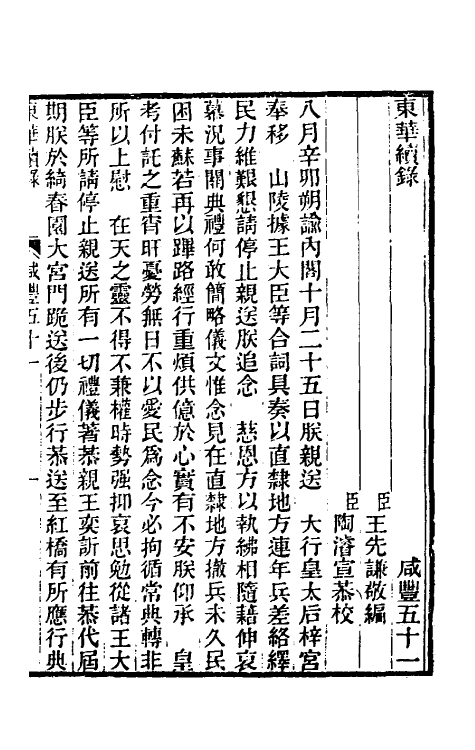 東華續錄　咸豐五十一
臣王先謙敬編
臣陶濬宣恭校
八月辛卯朔諭內閣十月二十五日朕親送　大行皇太后梓宮
奉移　山陵據王大臣等合詞具奏以直隸地方連年兵差絡繹
民力維艱懇請停止親送朕追念　慈恩方以執紼相隨藉伸哀
慕況事關典禮何敢簡略儀文惟念見在直隸地方撤兵未久民
困未蘇若再以蹕路經行重煩供億於心實有不安朕仰承　皇
考付託之重宵旰憂勞無日不以愛民爲念今必拘循常典轉非
所以上慰　在天之靈不得不兼權時勢强抑哀思勉從諸王大
臣等所請停止親送所有一切禮儀著恭親王奕訢前往恭代屆
期朕於綺春園大宮門跪送後仍步行恭送至紅橋有所應行典
東華續錄　咸豐五十一　一